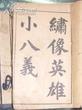 繡像英雄
小八義